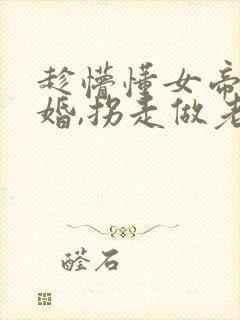 趁懵懂女帝
婚,拐走做老
醛石